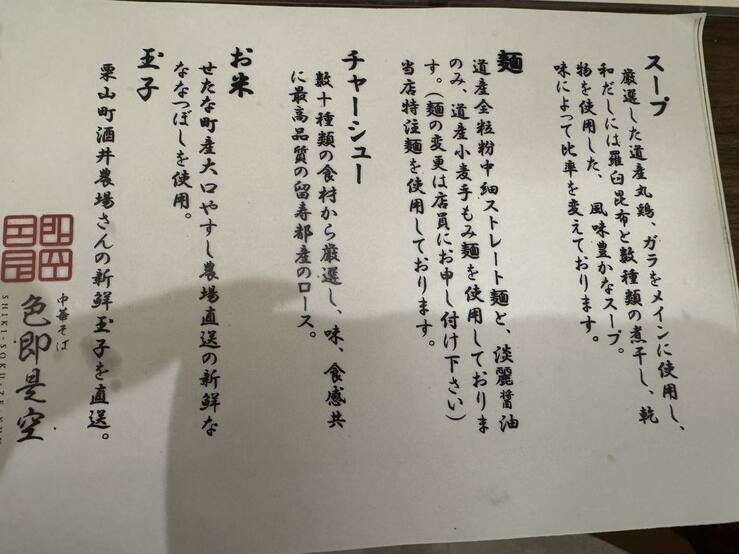 スープ
厳選した道産丸鶏、ガラをメインに使用し、
和だしには羅臼昆布と数種類の煮干し、乾
物を使用した、風味豊かなスープ。
味によって比率を変えております。
麺
道産全粒粉中細ストレート麺と、淡麗醤油
のみ、道産小麦手もみ麺を使用しておりま
す。(麺の変更は店員にお申し付け下さい)
当店特注麺を使用しております。
チャーシュー
数十種類の食材から厳選し、味、食感共
に最高品質の留寿都産のロース。
お米
せたな町産大口やすし農場直送の新鮮な
ななつぼしを使用。
玉子
栗山町酒井農場さんの新鮮玉子を直送。
中華そば
色即是空
SHIKI-SOKU-ZE-KUU